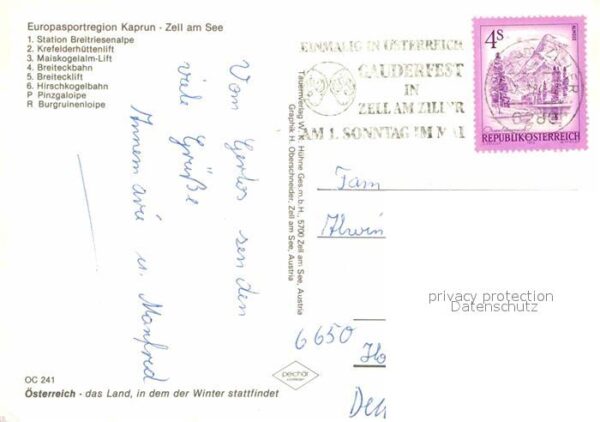 Europasportregion Kaprun · Zell am See
1. Station Breitriesenalpe
2. Krefelderhüttenlift
3. Maiskogelalm-Lift
4. Breiteckbahn
5. Breitecklift
6. Hirschkogelbahn
P Pinzgaloipe
R Burgruinenloipe
Vom Gerlos senden
viele Grüße
Annemarie u. Manfred
OC 241
Österreich - das Land, in dem der Winter stattfindet
Tauernverlag W. K. Hühne Ges.m.b.H., 5700 Zell am See, Austria
Graphik H. Oberschneider, Zell am See, Austria
EINMALIG IN ÖSTERREICH
GAUDERFEST
IN
ZELL AM ZILLER
AM 1. SONNTAG IM MAI
4S
REPUBLIK ÖSTERREICH
Fam
Alwin
privacy protection
Datenschutz
6650
Ho
pechar